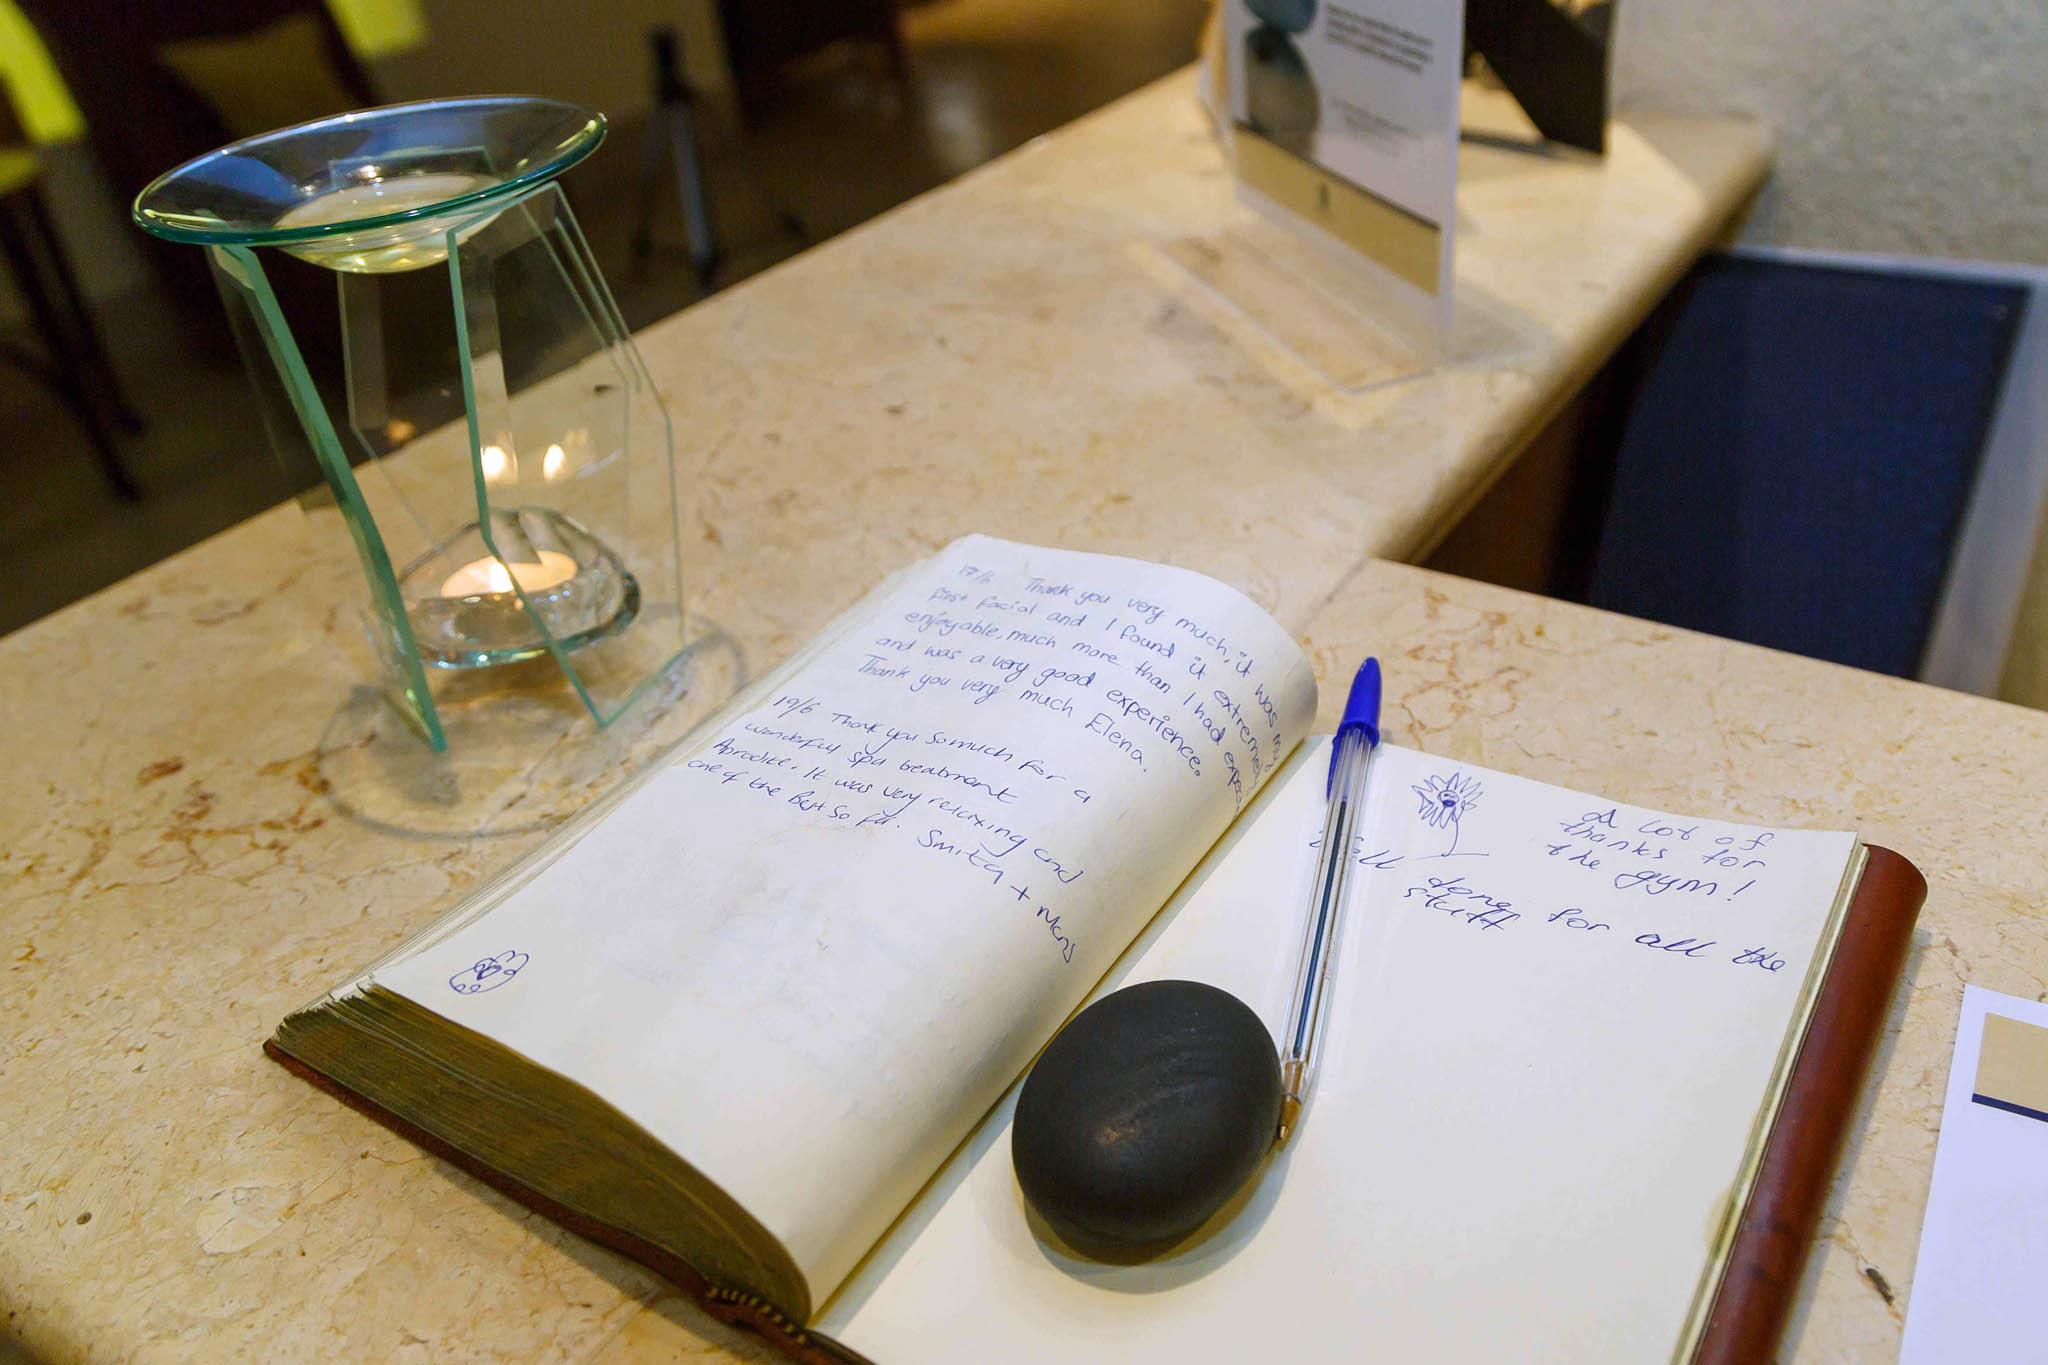 17/6 Thank you very much, it was my
first facial and I found it extremely
enjoyable, much more than I had expec
and was a very good experience.
Thank you very much Elena.
19/6 Thank you so much for a
wonderful spa treatment
Aprodite. It was very relaxing and
one of the Best so far. Smita + Mans
a lot of
thanks for
the gym!
Well done for all the
staff